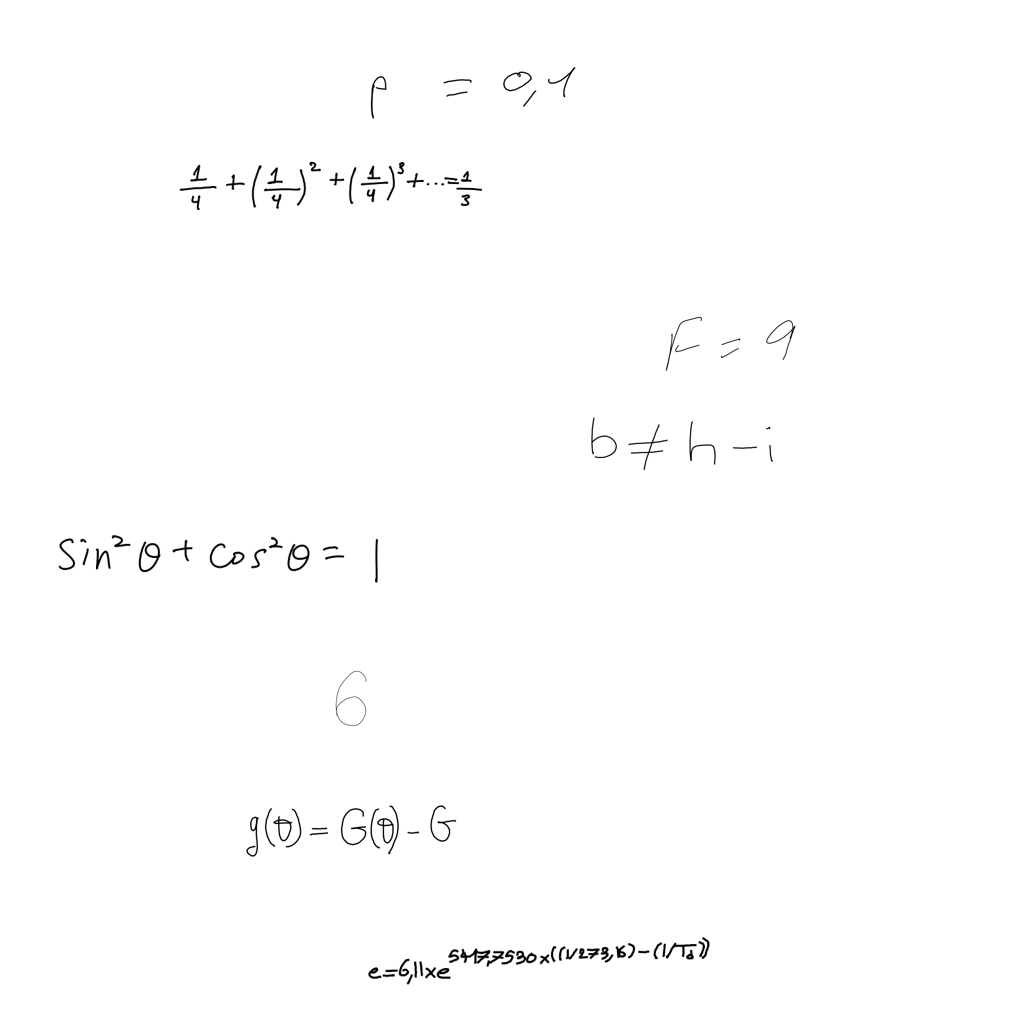 ρ = 0,1
1/4 + (1/4)² + (1/4)³ + ... = 1/3
F = 9
b ≠ h - i
sin² θ + cos² θ = 1
6
g(t) = G(t) - G
e=6,11×e^(5417,7530×((1/273,16)-(1/T_d)))